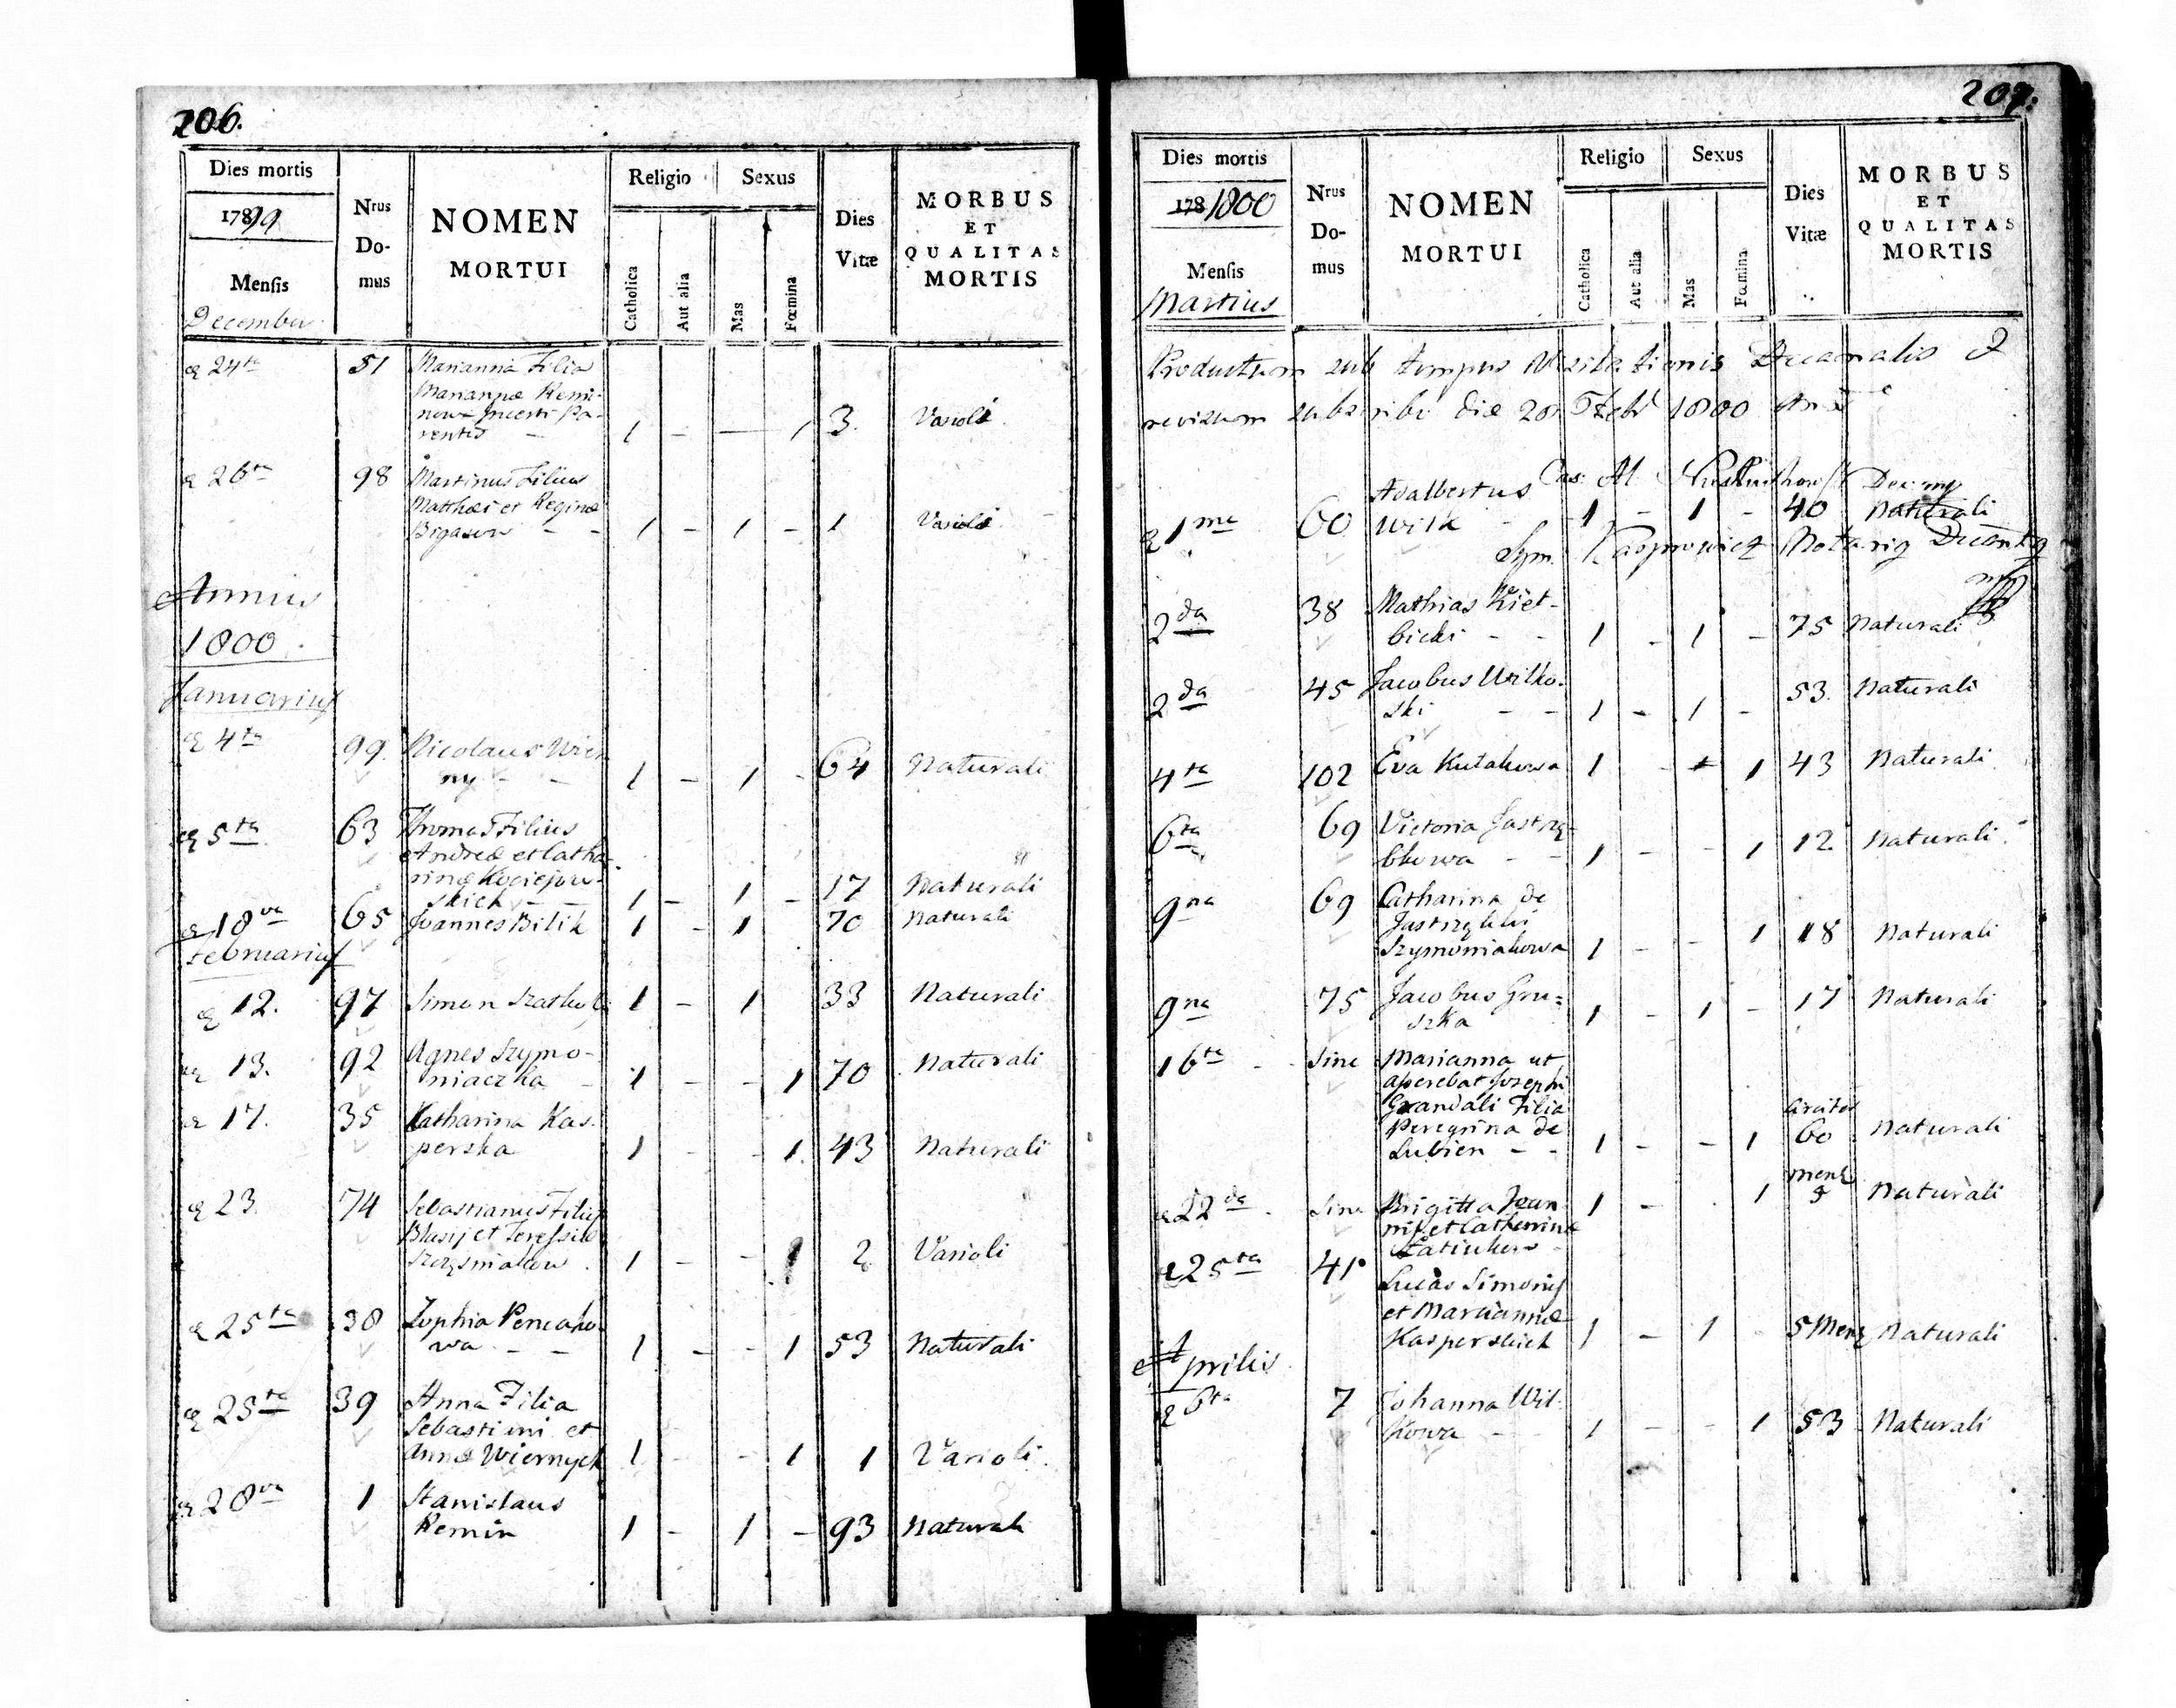 206.
Dies mortis
1789 99
Mensis
December
Nrus
Do-
mus
NOMEN
MORTUI
Religio
Sexus
Catholica
Aut alia
Mas
Fœmina
Dies
Vitæ
MORBUS
ET
QUALITAS
MORTIS
24ta 51 Marianna Filia
Mariannæ Remi-
now Incerti Pa-
rentis - 1 - — 1 3. Varioli
26ta 98 Martinus Filius
Matthæi et Reginæ
- - 1 - 1 - 1 Varioli
Annus
1800.
Januarius
4ta 99. Nicolaus Wier
ny - - 1 - 1 - 64 Naturali
5ta 63 Thomas Filius
Andreæ et Catha-
rinæ Kociejow-
skich - 1 - 1 - 17 Naturali
18va 65 Joannes Bilik 1 - 1 70 Naturali
Februarius
12. 97 Simon 1 - 1 33 Naturali
13. 92 Agnes Szymo-
niaczka - 1 - - 1 70 Naturali
17. 35 Katharina Kas-
perska 1 - - 1. 43 Naturali
23. 74 Sebastianus Filius
Blasij et
1 - - 1 2 Varioli
25ta 38 Zophia
wa - - 1 - - 1 53 Naturali
25ta 39 Anna Filia
Sebastiani et
Annæ Wiernych 1 - - 1 1 Varioli.
28va 1 Stanislaus
Remin 1 - 1 - 93 Naturali
207.
Dies mortis
178 1800
Mensis
Martius
Nrus
Do-
mus
NOMEN
MORTUI
Religio
Sexus
Catholica
Aut alia
Mas
Fœmina
Dies
Vitæ
MORBUS
ET
QUALITAS
MORTIS
Productum sub tempus Visitationis Decanalis &
revisum subscribo die 20 Febr 1800 An
Cas: M. Dec:
1ma 60 Adalbertus
Wilk - 1 - 1 - 40 Naturali
Sym. Kasprowicz Notariq
2da 38 Mathias Kieł-
bicki - - 1 - 1 - 75 Naturali
2da 45 Jacobus Wilko-
ski - - 1 - 1 - 53. Naturali
4ta 102 Eva Kutakowa 1 - 1 43 Naturali
6ta 69 Victoria Jastrzę-
bkowa - - 1 - - 1 12. Naturali.
9na 69 Catharina de
Jastrzębski
Szymoniakowa 1 - - 1 18 Naturali
9na 75 Jacobus Gru=
szka 1 - 1 - 17 Naturali
16ta - Sine Marianna ut
aperebat Josephi
Grandali Filia
Peregrina de
Lubien - - 1 - - 1 circiter
60 Naturali
22da. Sine Brigitta Joan
nis et Catharinæ
1 - 1 mens
9 Naturali
25ta 41 Lucas Simonis
et Mariannæ
Kasperskich 1 - 1 5 Mens Naturali
Aprilis
6ta 7 Johanna Wil-
kowa - 1 - - 1 53 Naturali